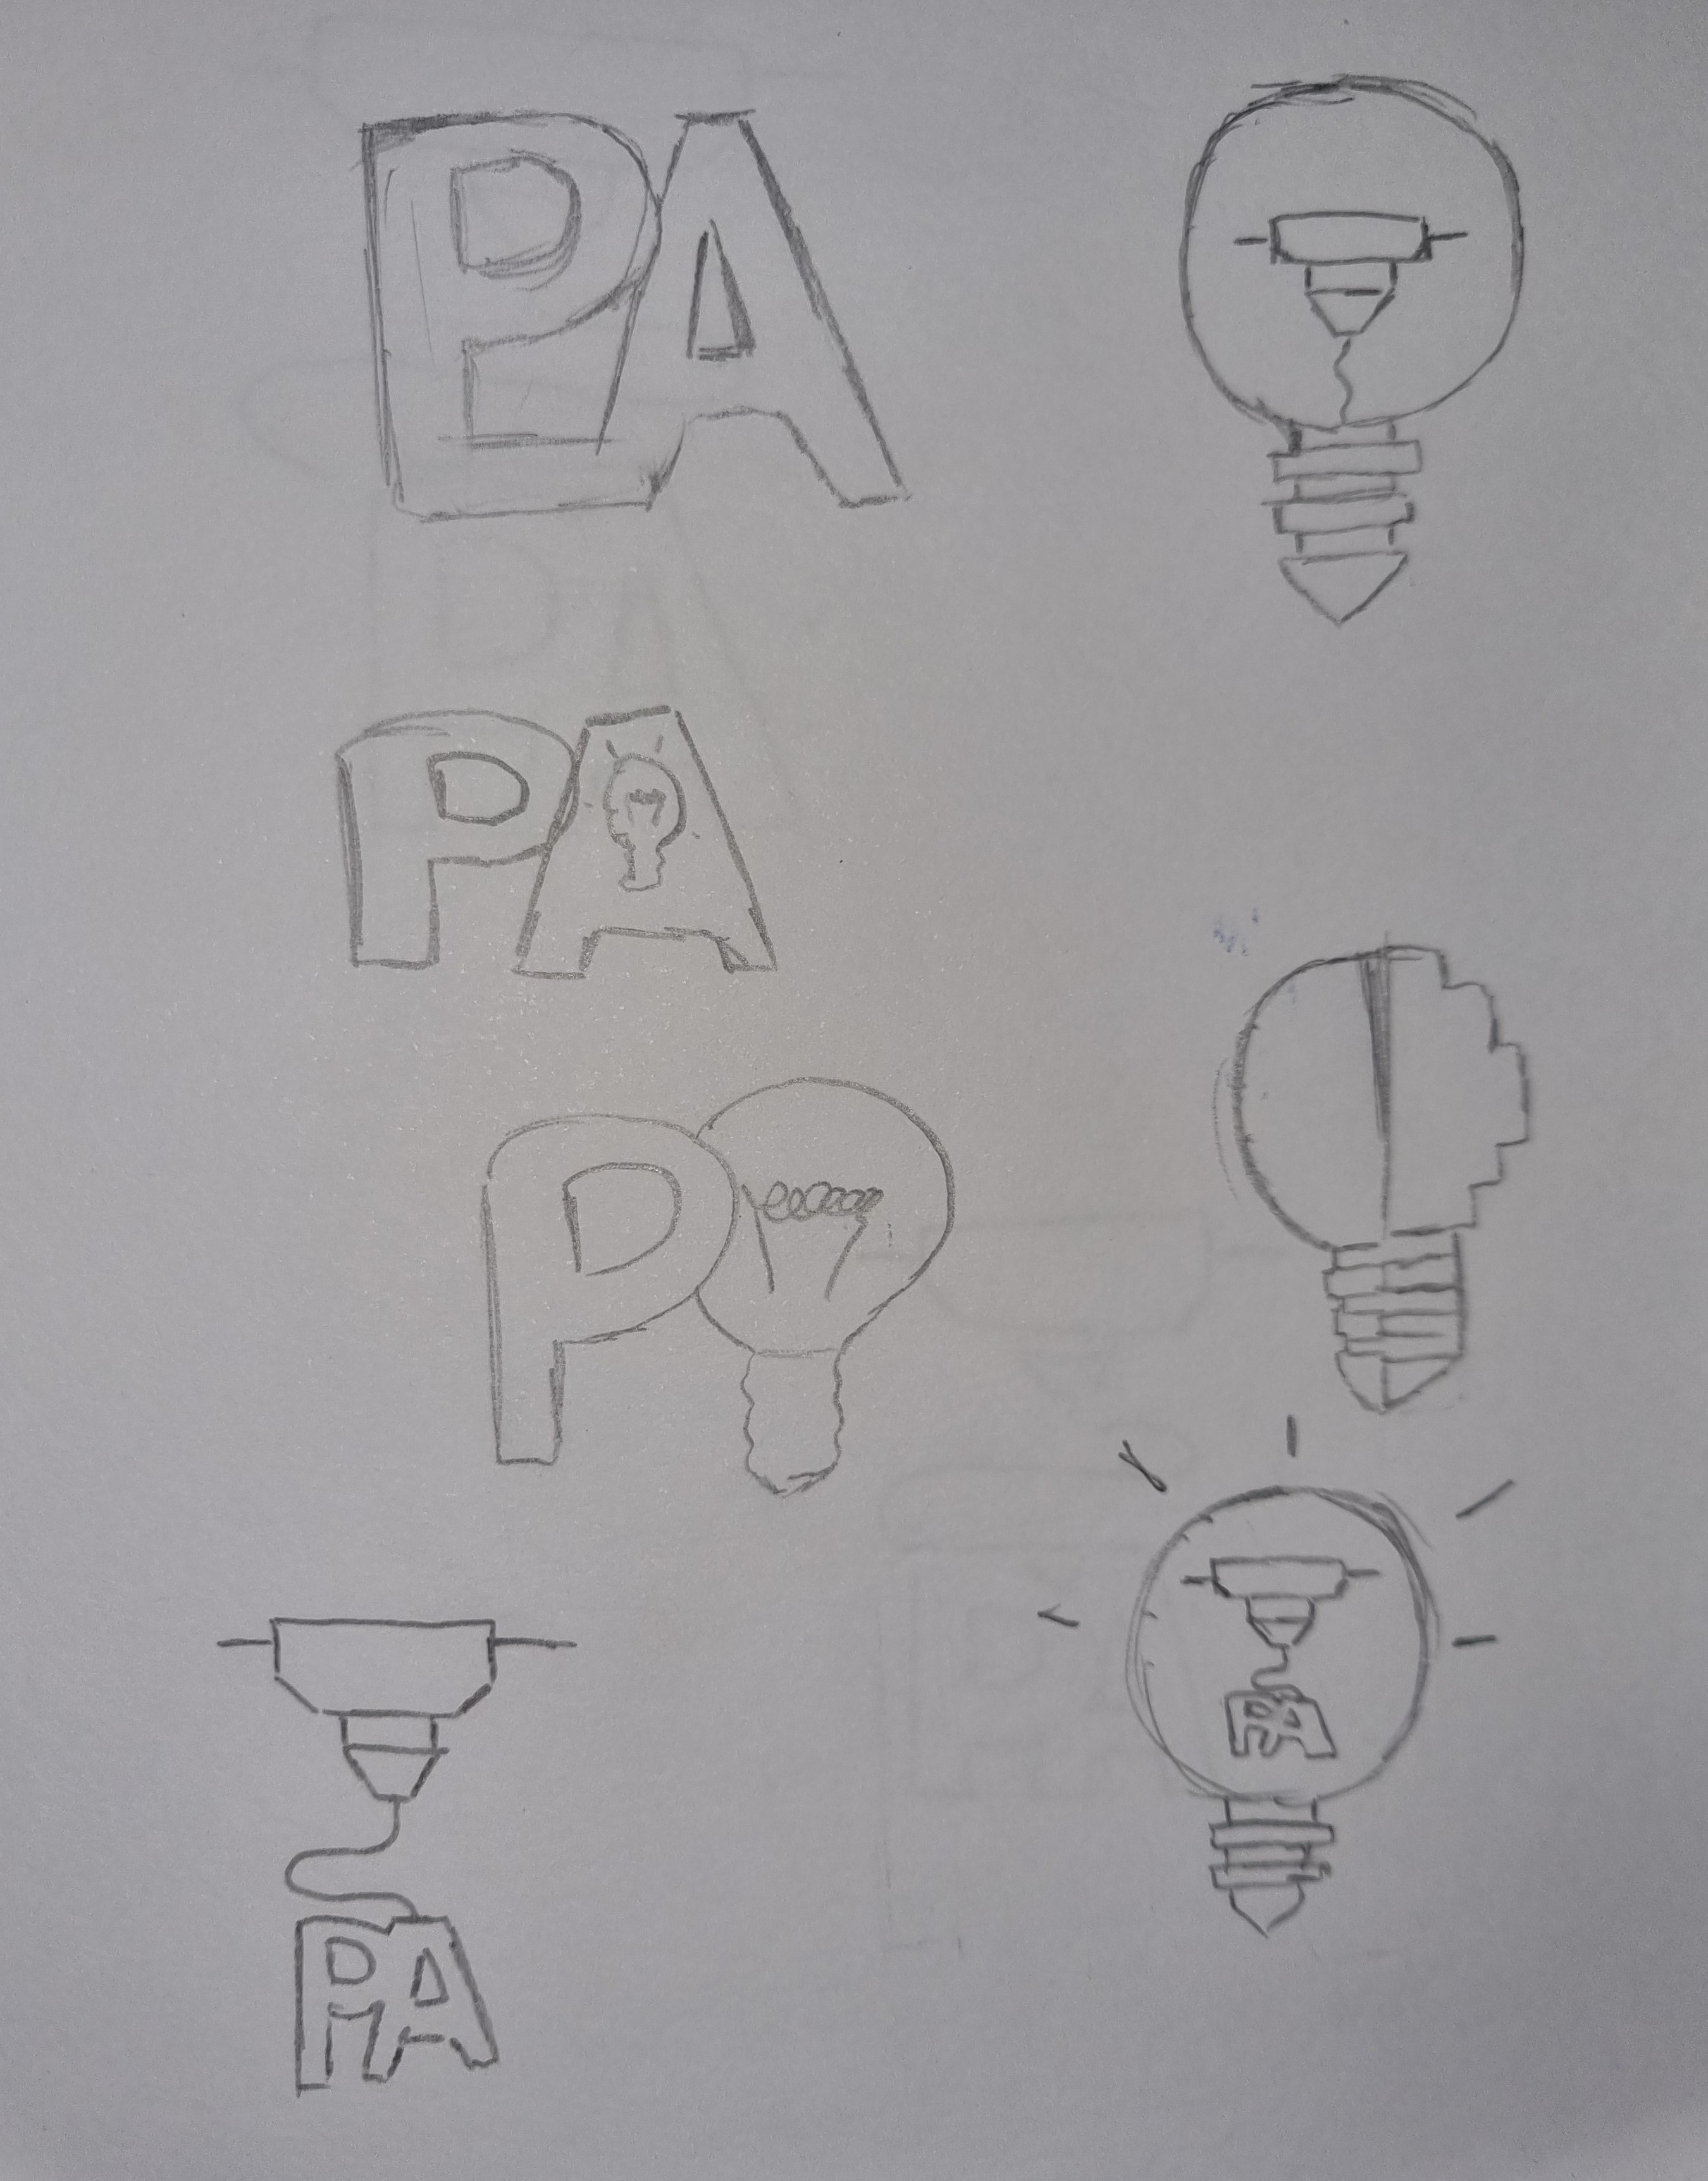 PA
PA
P
PA
PA